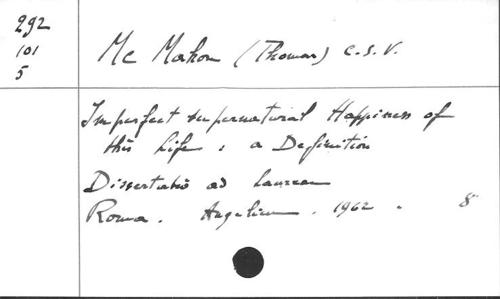 292
101
5
Mc Mahon (Thomas) C.S.V.
Imperfect supernatural Happiness of
this Life : a Definition
Dissertatio ad Lauream
Roma. Angelicum. 1962. 8